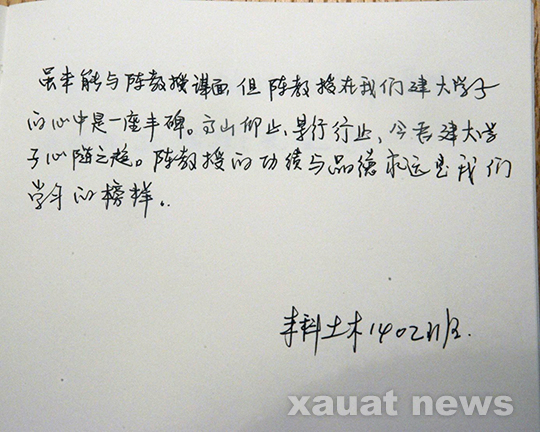 虽未能与陈教授谋面,但陈教授在我们建大学子
的心中是一座丰碑。高山仰止,景行行止,令吾建大学
子心随之趋。陈教授的功绩与品德永远是我们
学习的榜样..
土木1402班.
xauat news